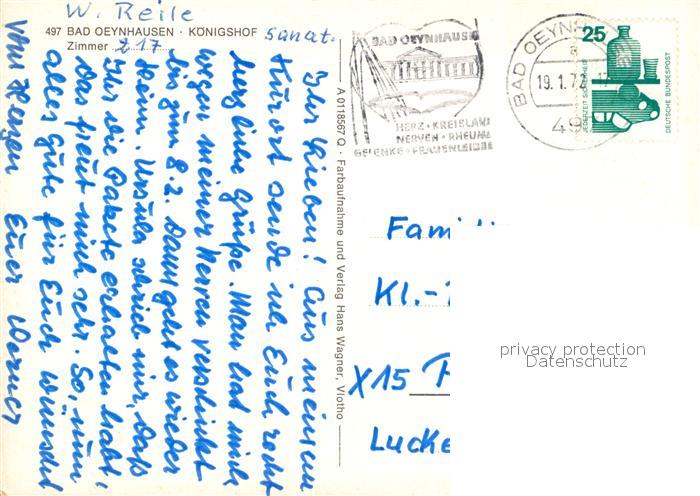 W. Reile
497 BAD OEYNHAUSEN · KÖNIGSHOF
Sanat.
Zimmer 217
Ihr Lieben! Aus meinem
Kurort sende ich Euch recht
herzliche Grüße. Man hat mich
wegen meiner Nerven verschickt
bis zum 8.2. Dann geht es wieder
Ursula schrieb mir, daß
Ihr die Pakete erhalten habt,
das freut mich sehr. So, nun
alles Gute für Euch wünscht
von Herzen Euer Werner
A 0118567 Q · Farbaufnahme und Verlag Hans Wagner, Vlotho
BAD OEYNHAUSEN
HERZ · KREISLAUF
NERVEN · RHEUMA
GELENKE · FRAUENLEIDEN
BAD OEYNH
a
19.1.7
49
25
JEDERZEIT SICHERHEIT
DEUTSCHE BUNDESPOST
Fami
Kl.-
X15
Lucke
privacy protection
Datenschutz